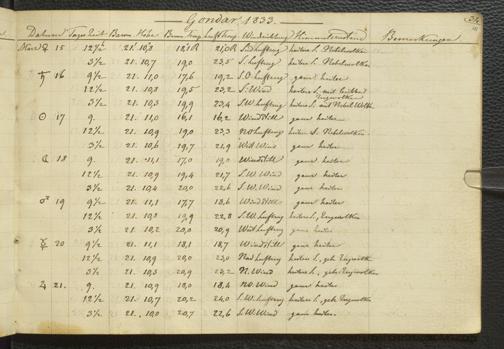 Gondar 1833.
Datum Tages Zeit Barom. Höhe Windrichtung Bemerkungen
März ♀ 15 12½ 21. 10,8 S.O. Luftzug heitere L. Nebelwolken
3½ 21. 10,7 19,0 23,5 S. Luftzug heitere L. Nebelwolken
♄ 16 9½ 21. 11,0 17,6 19,2 S.O. Luftzug ganz heiter
12½ 21. 10,8 19,5 23,2 S. Wind heitere L. mit
3½ 21. 10,3 19,9 23,4 S.W. Luftzug heitere L. mit Nebel Wolken
☉ 17 9. 21. 11,0 16,1 16,2 Windstill ganz heiter
12½ 21. 10,9 19,0 23,3 N.O. Luftzug heitere L. Nebelwolken
3½ 21. 10,6 19,7 21,9 West Wind ganz heiter
☾ 18 9. 21. 11,1 17,0 19,0 Windstill ganz heiter
12½ 21. 10,9 19,4 21,7 S.W. Wind ganz heiter
3½ 21. 10,4 20,0 22,6 S.W. Wind ganz heiter
♂ 19 9½ 21. 11,1 17,7 18,6 Windstill ganz heiter
12½ 21. 10,8 19,9 22,8 S.W. Luftzug heitere L.
3½ 21. 10,2 20,0 20,9 West Luftzug ganz heiter
☿ 20 9½ 21. 11,1 18,1 18,7 Windstill ganz heiter
12½ 21. 10,9 20,0 23,0 Luftzug heitere L.
3½ 21. 10,3 20,9 N. Wind heitere L.
♃ 21. 9. 21. 10,9 18,0 18,4 N.O. Wind ganz heiter
12½ 21. 10,7 20,2 24,0 S.W. Luftzug heitere L.
3½ 21. 10,0 20,7 22,6 S.W. Wind ganz heiter.